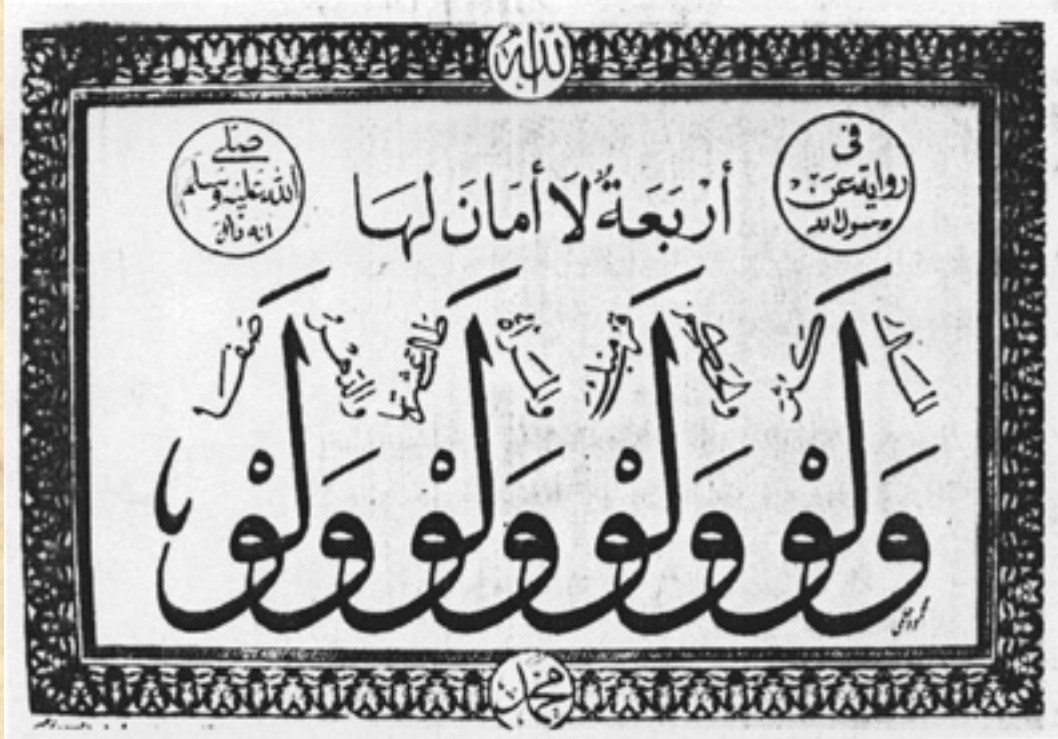 الله
في
رواية عن
رسول الله
صلى
الله عليه وسلم
أنه قال
أَرْبَعَةٌ لَا أَمَانَ لَهَا
المال وَلَوْ كثر
والحصن وَلَوْ منيت
والمرأة وَلَوْ طالت عشرتها
والدهر وَلَوْ صفا
محمد